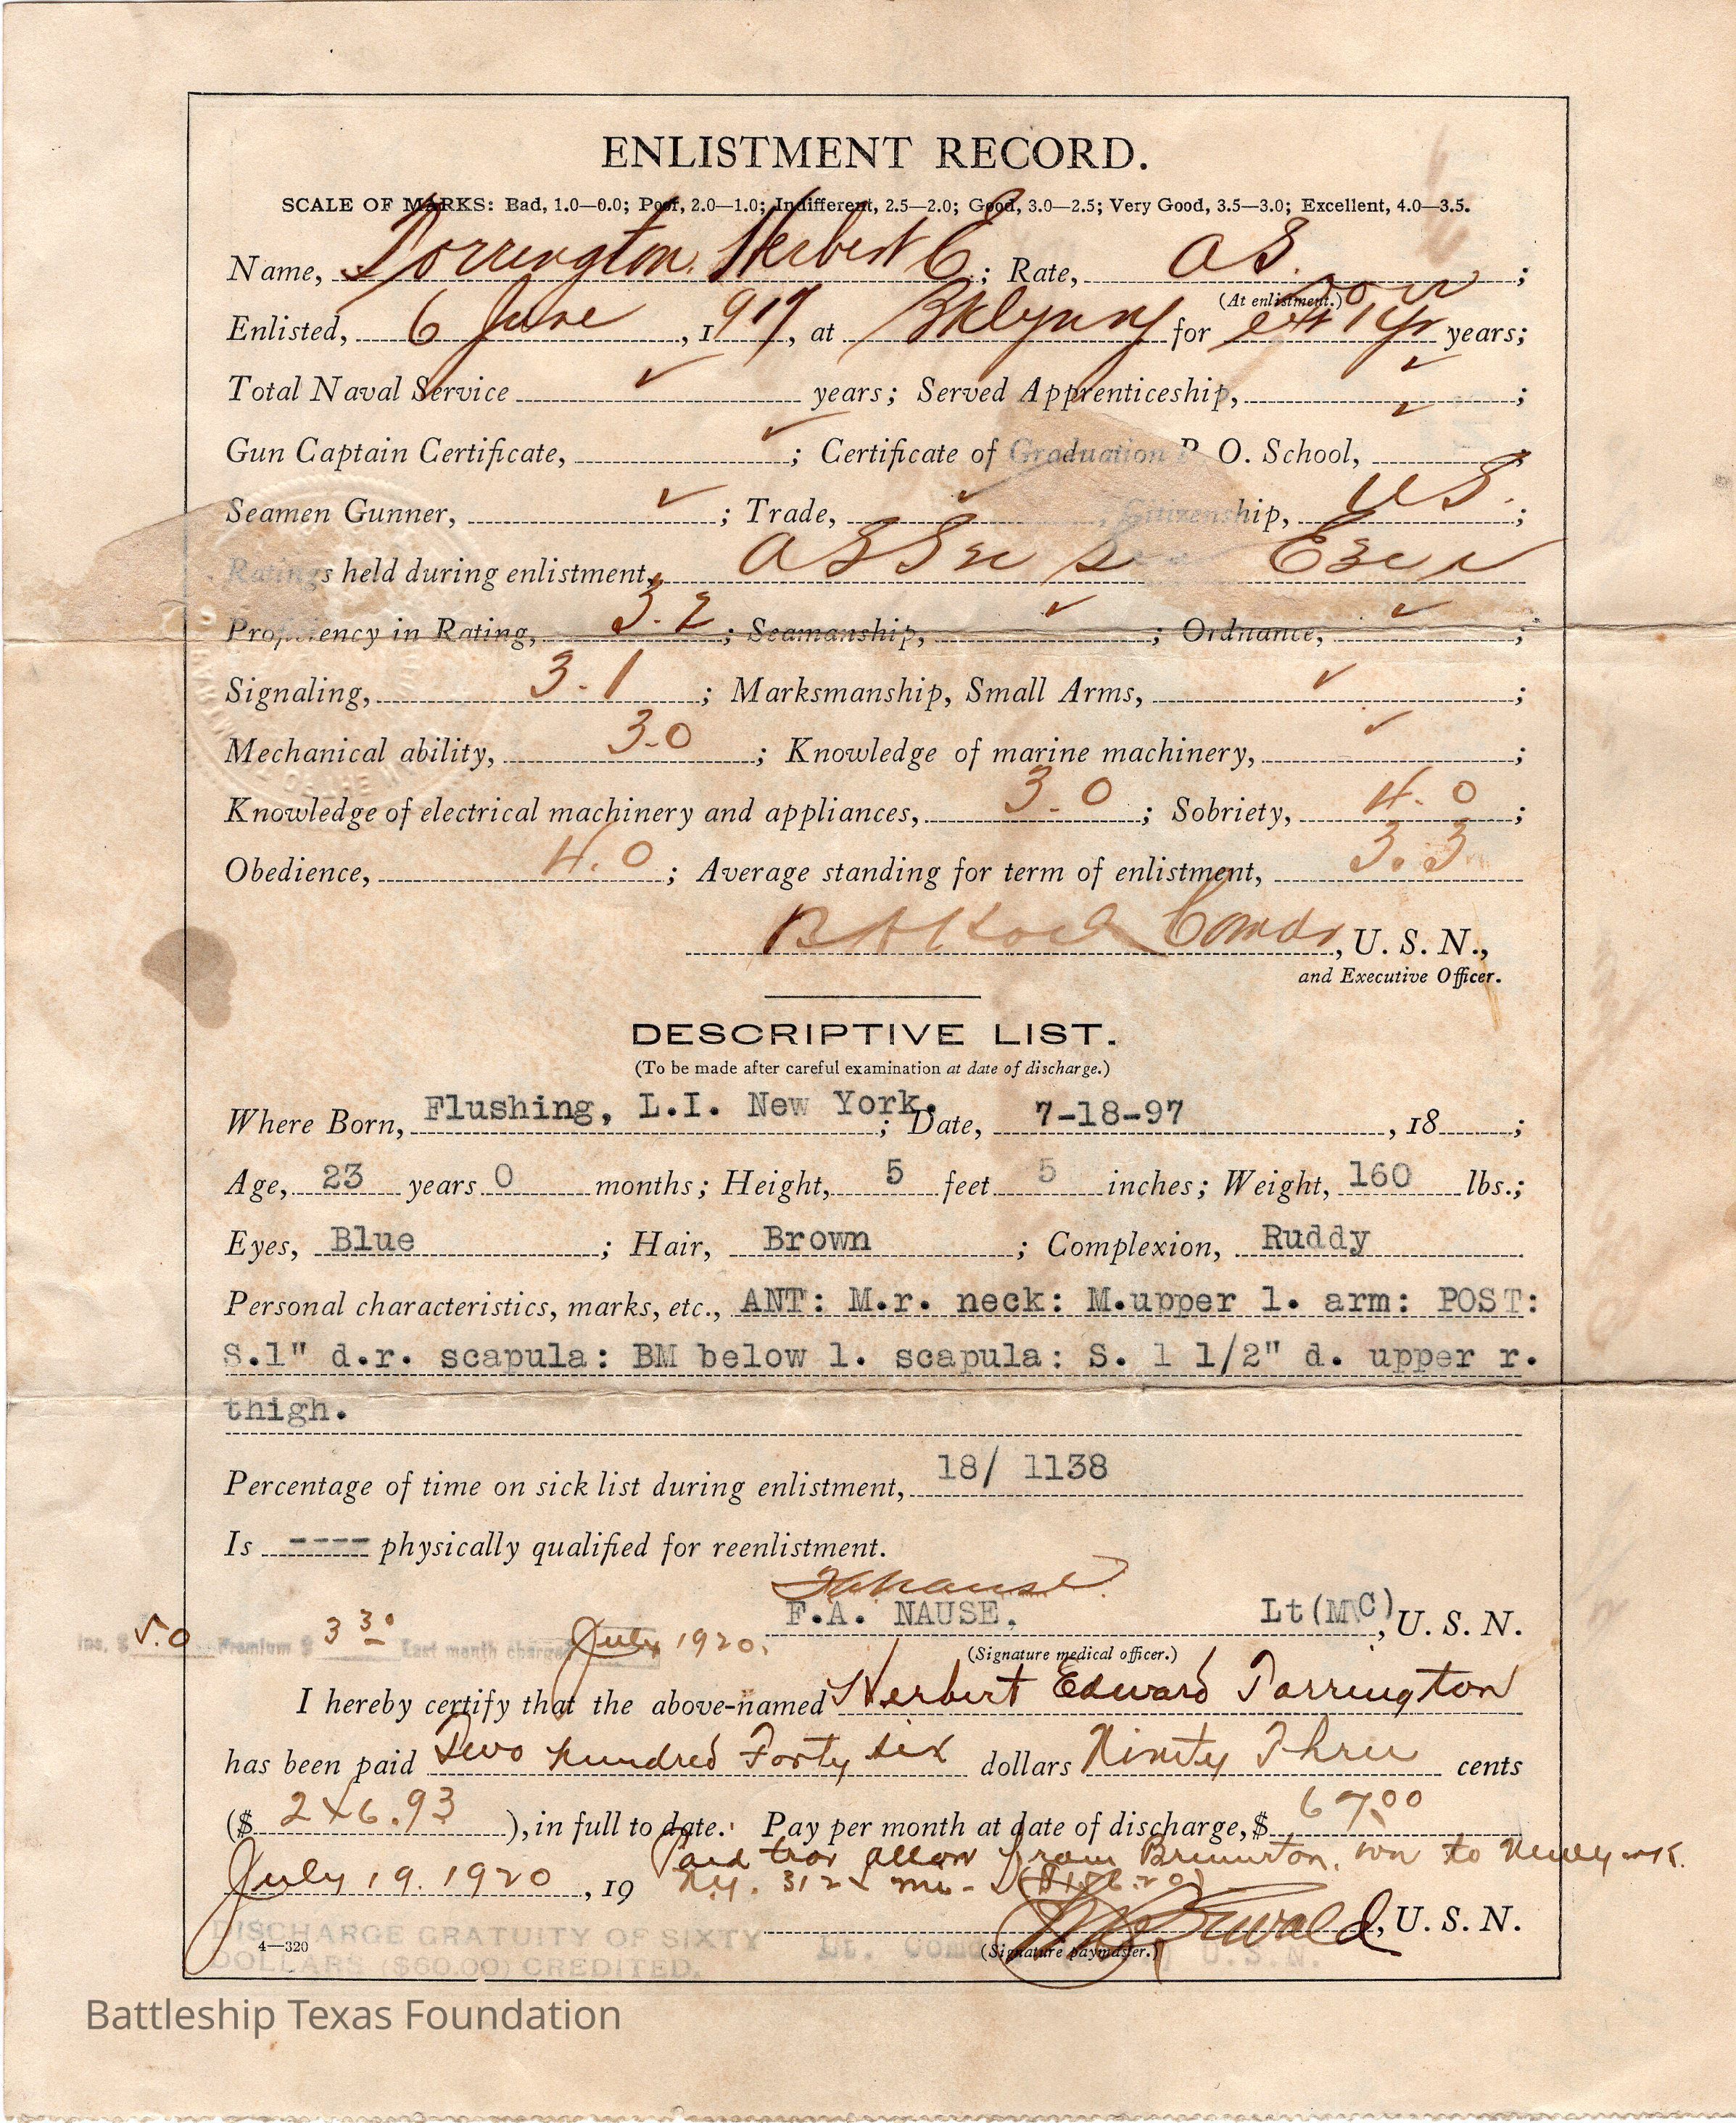 ENLISTMENT RECORD.
SCALE OF MARKS: Bad, 1.0—0.0; Poor, 2.0—1.0; Indifferent, 2.5—2.0; Good, 3.0—2.5; Very Good, 3.5—3.0; Excellent, 4.0—3.5.
Name, Torrington, Herbert E.; Rate, A S.;
(At enlistment.)
Enlisted, 6 June, 1917, at Bklyn NY for ext 1 yr years;
Total Naval Service ✓ years; Served Apprenticeship, ✓;
Gun Captain Certificate, ✓; Certificate of Graduation P. O. School, ✓
Seamen Gunner, ✓; Trade, ✓, Citizenship, U S.;
Ratings held during enlistment, A S
Proficiency in Rating, 3.2; Seamanship, ✓; Ordnance, ✓;
Signaling, 3.1; Marksmanship, Small Arms, ✓;
Mechanical ability, 3.0; Knowledge of marine machinery, ✓;
Knowledge of electrical machinery and appliances, 3.0; Sobriety, 4.0;
Obedience, 4.0; Average standing for term of enlistment, 3.3
Comdr, U. S. N.,
and Executive Officer.
DESCRIPTIVE LIST.
(To be made after careful examination at date of discharge.)
Where Born, Flushing, L.I. New York.; Date, 7-18-97, 18;
Age, 23 years 0 months; Height, 5 feet 5 inches; Weight, 160 lbs.;
Eyes, Blue; Hair, Brown; Complexion, Ruddy
Personal characteristics, marks, etc., ANT: M.r. neck: M.upper l. arm: POST:
S.1" d.r. scapula: BM below l. scapula: S. 1 1/2" d. upper r.
thigh.
Percentage of time on sick list during enlistment, 18/ 1138
Is ---- physically qualified for reenlistment.
FANause
F.A. NAUSE. Lt(MC), U. S. N.
Ins. $ 5.0 Premium $ 3 30 Last month charged July 1920.
(Signature medical officer.)
I hereby certify that the above-named Herbert Edward Torrington
has been paid Two hundred Forty six dollars Ninety Three cents
($ 246.93), in full to date. Pay per month at date of discharge, $ 67.00
Paid trav allow from Bremerton, Wn to New York.
July 19. 1920, 19 N.Y. 312
, U. S. N.
DISCHARGE GRATUITY OF SIXTY
DOLLARS ($60.00) CREDITED.
4—320
Lt. Comdr. U.S.N.
(Signature paymaster.)
Battleship Texas Foundation